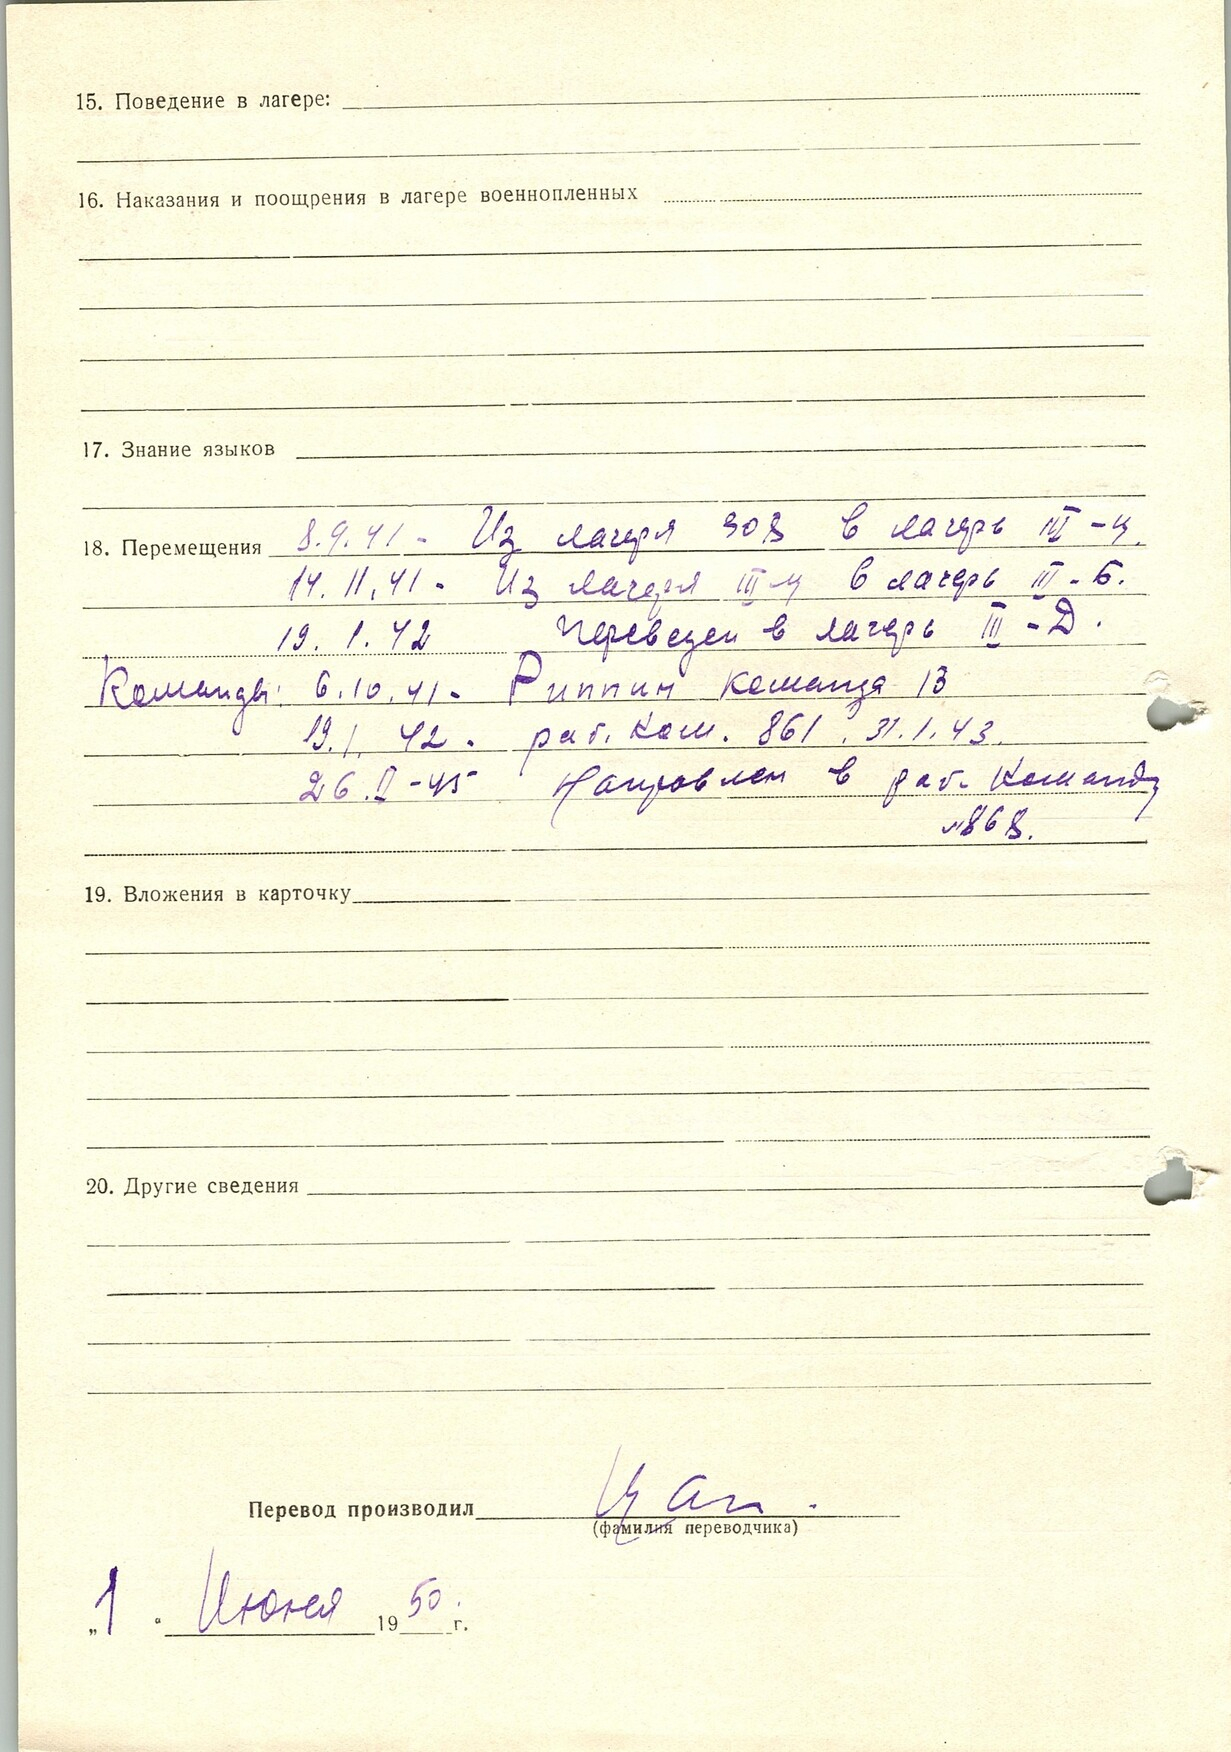 15. Поведение в лагере:
16. Наказания и поощрения в лагере военнопленных
17. Знание языков
18. Перемещения 8.9.41 - Из лагеря 308 в лагерь III-ц.
14.11.41 - Из лагеря III-ц в лагерь III-Б.
19.1.42 Переведен в лагерь III-D.
Команды: 6.10.41 - Риппин команда 13
19.1.42 - раб. ком. 861. 31.1.43.
26.II-45 Направлен в раб. команду
№868.
19. Вложения в карточку
20. Другие сведения
Перевод производил
(фамилия переводчика)
„1“ Июня 1950 г.